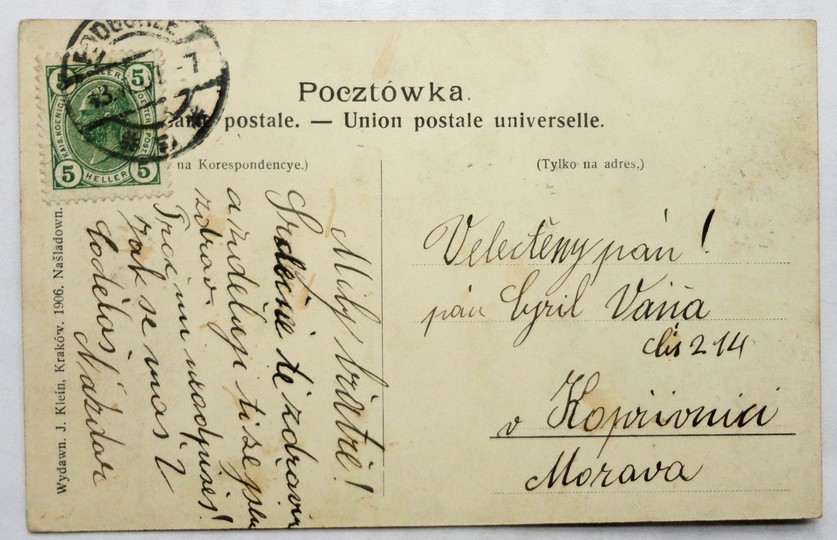 PODGÓRZE
5 5
KAIS. KOENIGL. OESTERR. POST.
5 HELLER 5
Pocztówka.
Carte postale. — Union postale universelle.
na Korespondencye.)
(Tylko na adres.)
Milý bratře!
Srdečně tě zdravím
a zděluji ti že jsem
zdráv.
jak se máš?
Co děláš
Nazdar
Velectěný pán!
pán Cyril Váňa
čís 214
v Kopřivnici
Morava
Wydawn. J. Klein, Kraków. 1906. Naśladown.